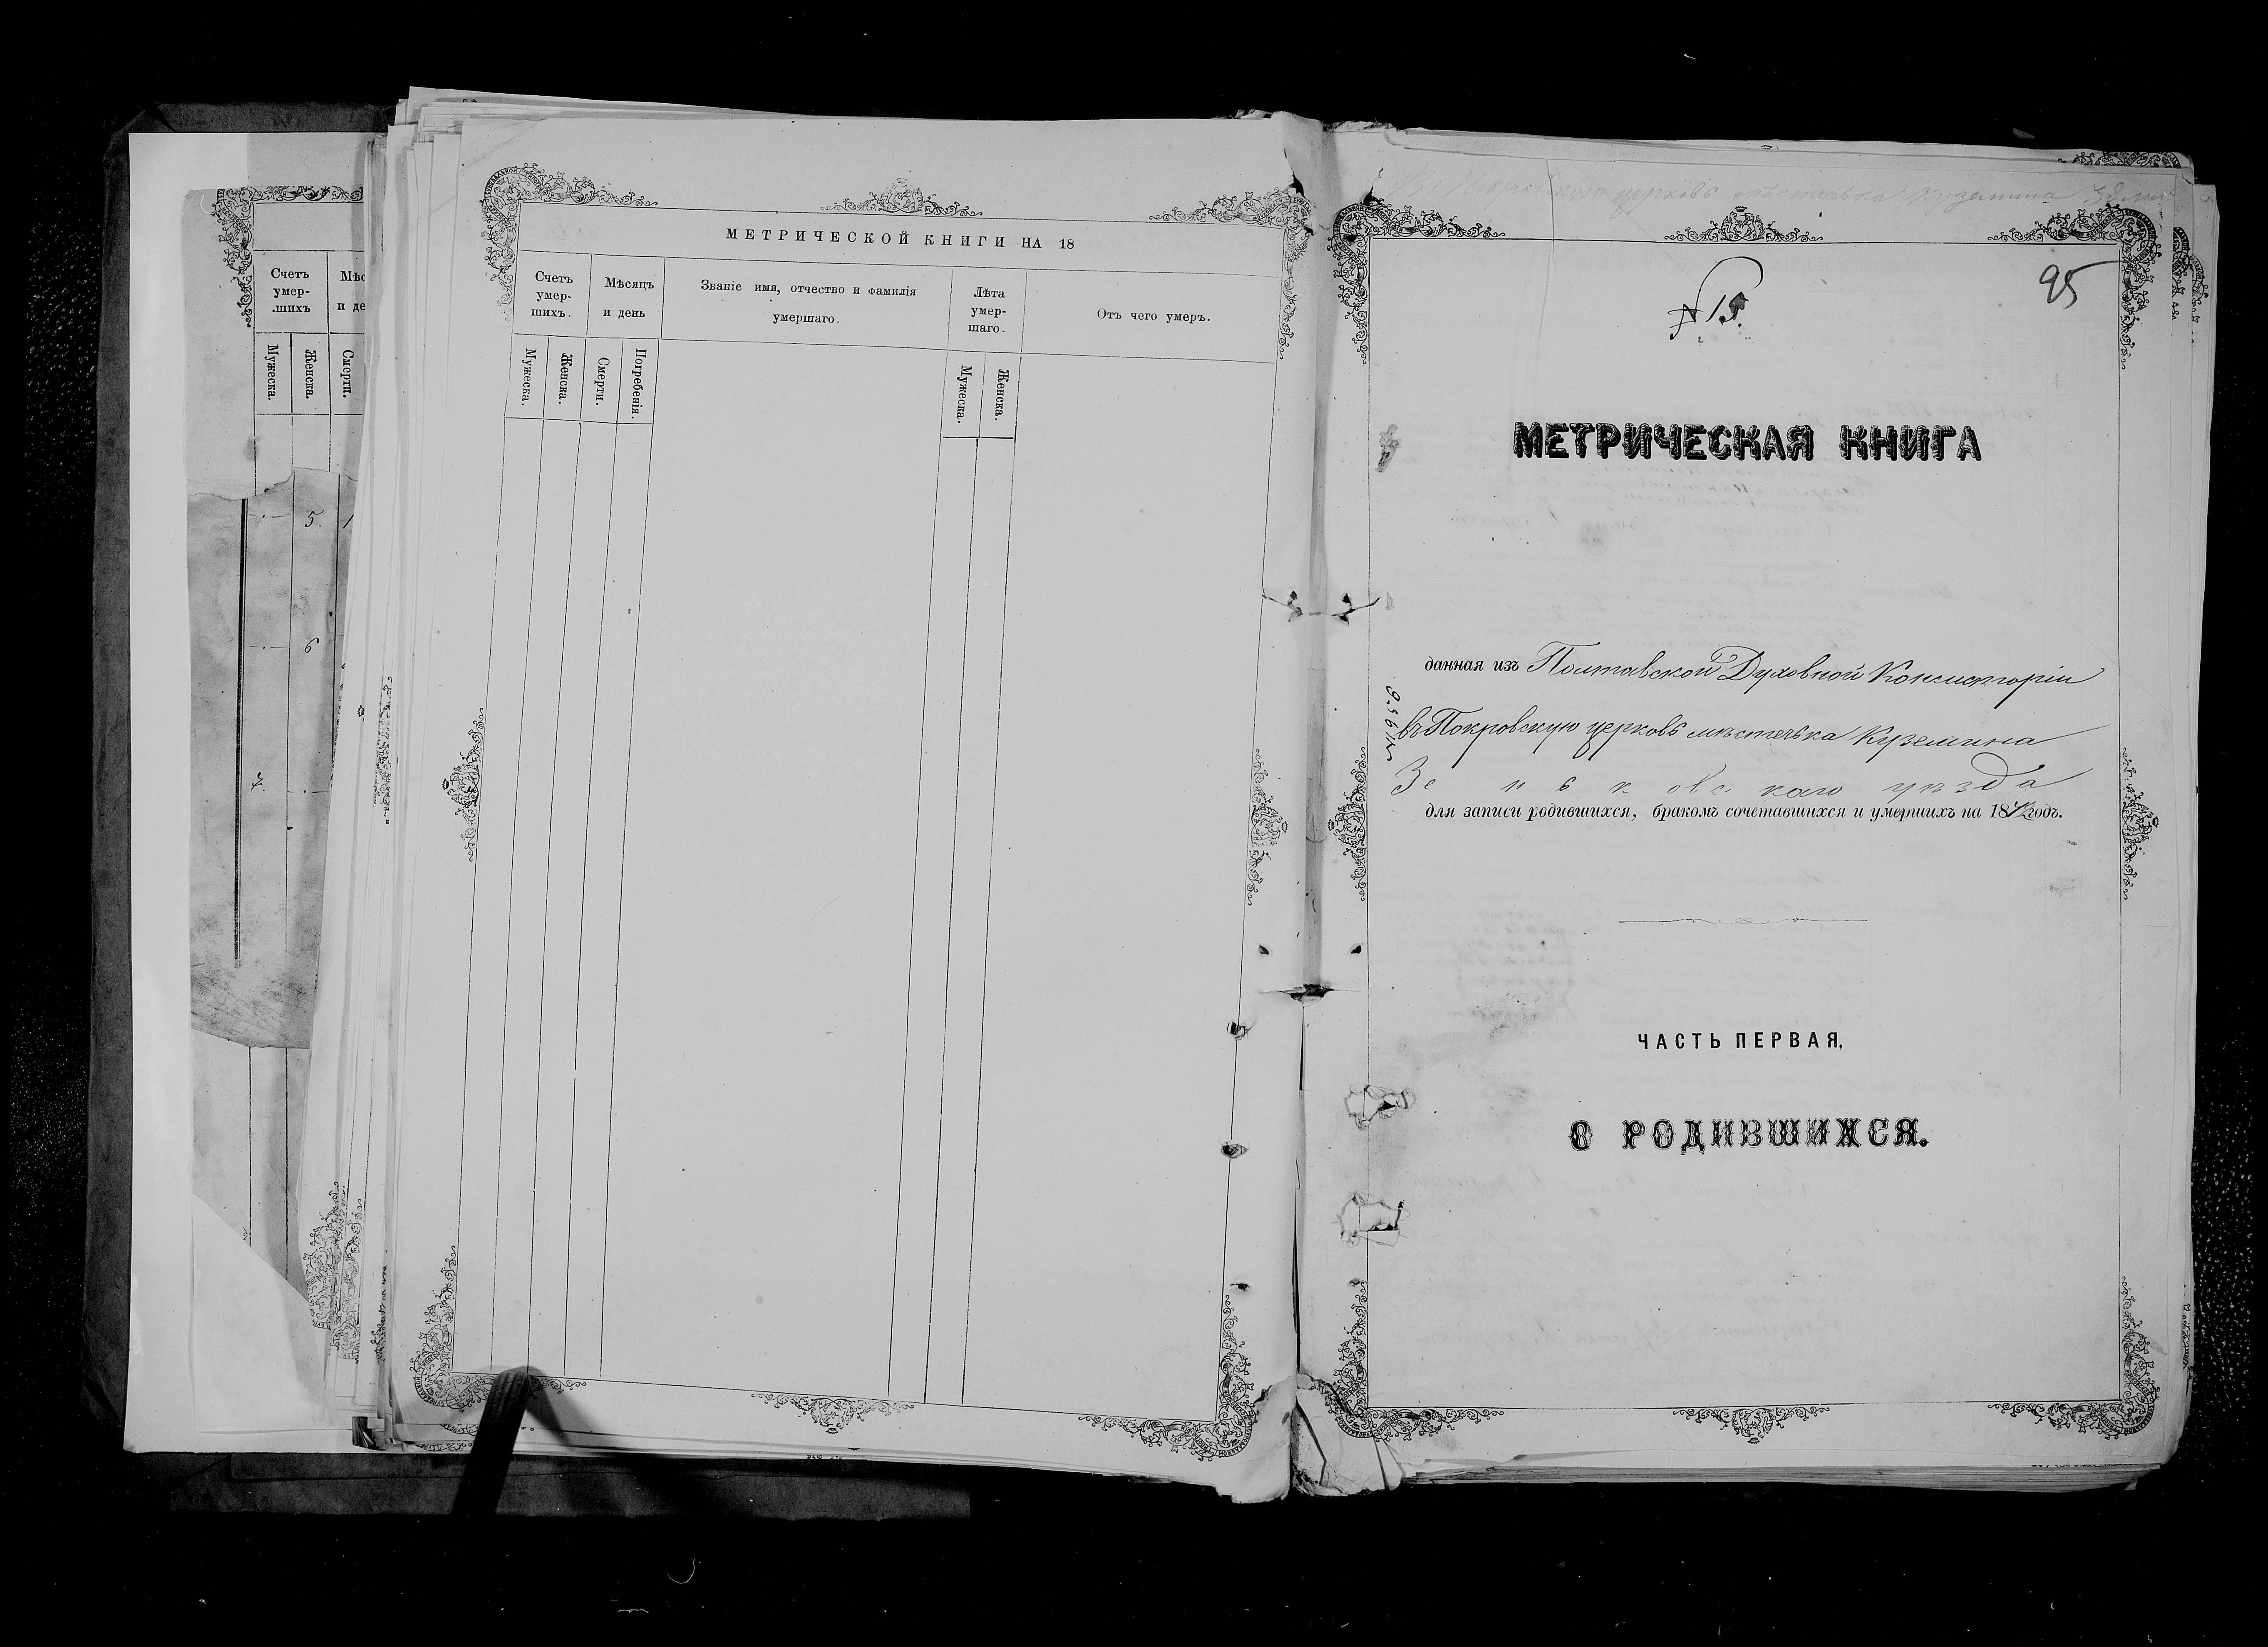 Счетъ
умер-
шихъ
Мужеска.
Женска.
Смерти.
5.
6
7.
МЕТРИЧЕСКОЙ КНИГИ НА 18
Счетъ
умер-
шихъ.
Мѣсяцъ
и день
Званіе имя, отчество и фамилія
умершаго.
Лѣта
умер-
шаго.
Отъ чего умеръ.
Мужеска.
Женска.
Смерти.
Погребенія.
Мужеска.
Женска.
церковь мѣстечька Куземина
95
№ 15.
МЕТРИЧЕСКАЯ КНИГА
данная изъ Полтавской Духовной Консисторіи
въ Покровскую церковь мѣстечька Куземина
Зеньковскаго уѣзда
для записи родившихся, бракомъ сочетавшихся и умершихъ на 18 годъ.
ЧАСТЬ ПЕРВАЯ,
О РОДИВШИХСЯ.